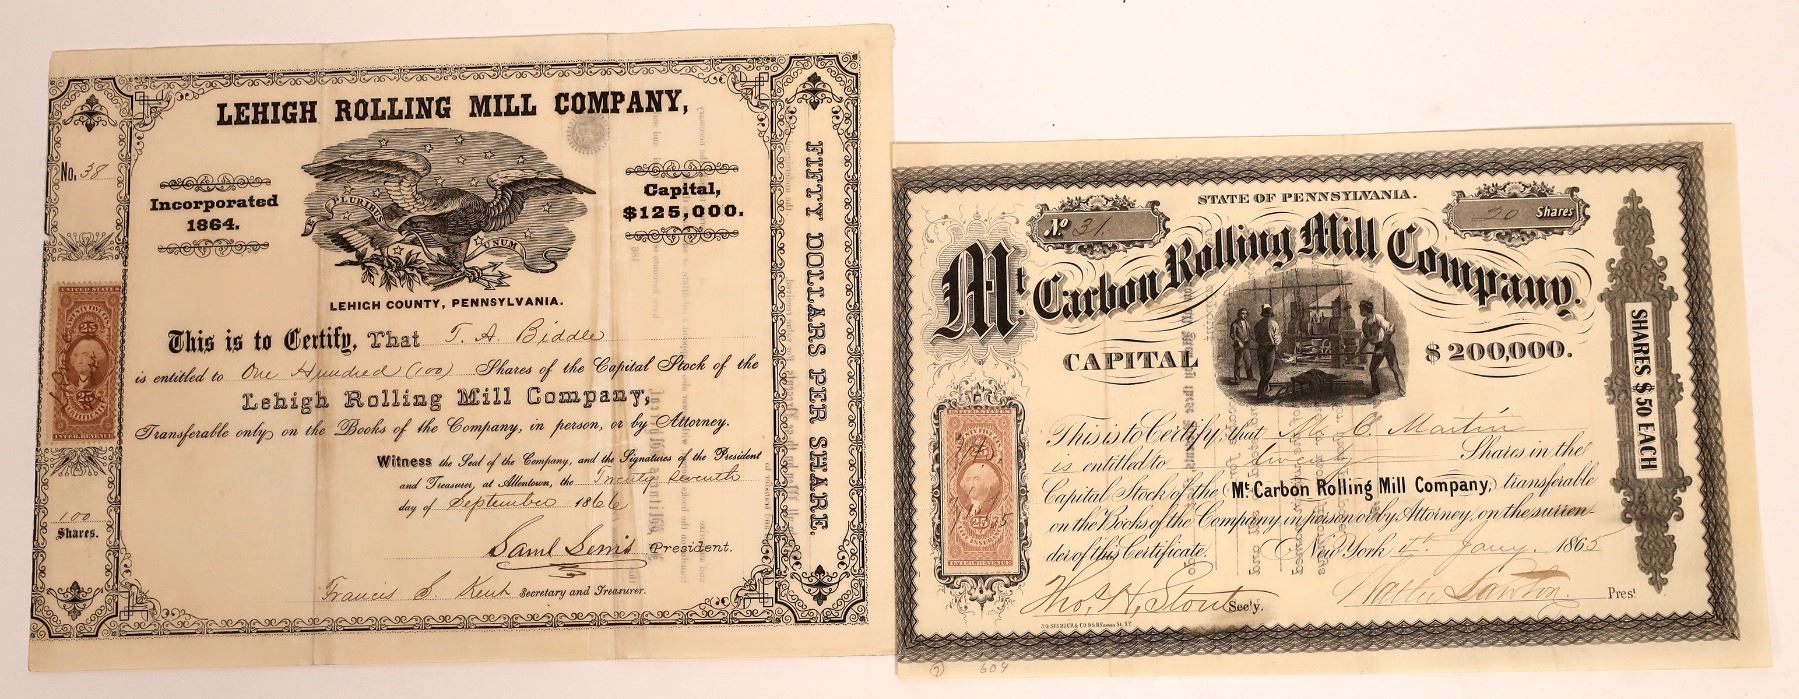 LEHIGH ROLLING MILL COMPANY,
No. 38
Incorporated
1864.
E PLURIBUS UNUM
Capital,
$125,000.
LEHIGH COUNTY, PENNSYLVANIA.
This is to Certify, That T. A. Biddle
is entitled to One Hundred (100) Shares of the Capital Stock of the
Lehigh Rolling Mill Company,
Transferable only on the Books of the Company, in person, or by Attorney.
Witness the Seal of the Company, and the Signatures of the President
and Treasurer, at Allentown, the Twenty Seventh
day of September 1866
Saml Lewis President.
Francis S. Kent Secretary and Treasurer.
100
Shares.
UNITED STATES
25 25
CERTIFICATE
INTER. REVENUE
FIFTY DOLLARS PER SHARE.
STATE OF PENNSYLVANIA.
No 31.
20 Shares
Mt. Carbon Rolling Mill Company.
CAPITAL $200,000.
This is to Certify, that M. C. Martin
is entitled to twenty Shares in the
Capital Stock of the Mt. Carbon Rolling Mill Company, transferable
on the Books of the Company in person or by Attorney, on the surren-
der of this Certificate. New York 4th Jany. 1865
Thos. H. Stout Sec'y.
Walter Lawton. Prest
SHARES $50 EACH
25
INTER. REVENUE
604